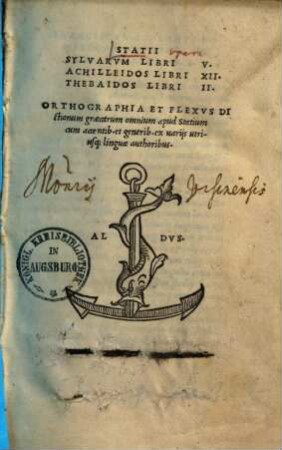 STATII opera
SYLVARVM LIBRI V.
ACHILLEIDOS LIBRI XII.
THEBAIDOS LIBRI II.
ORTHOGRAPHIA ET FLEXVS DI
ctionum græcarum omnium apud Statium
cum accentib. et generib. ex uarijs utri
usq; linguæ authoribus.
AL DVS.
KÖNIGL. KREISBIBLIOTHEK
IN
AUGSBURG